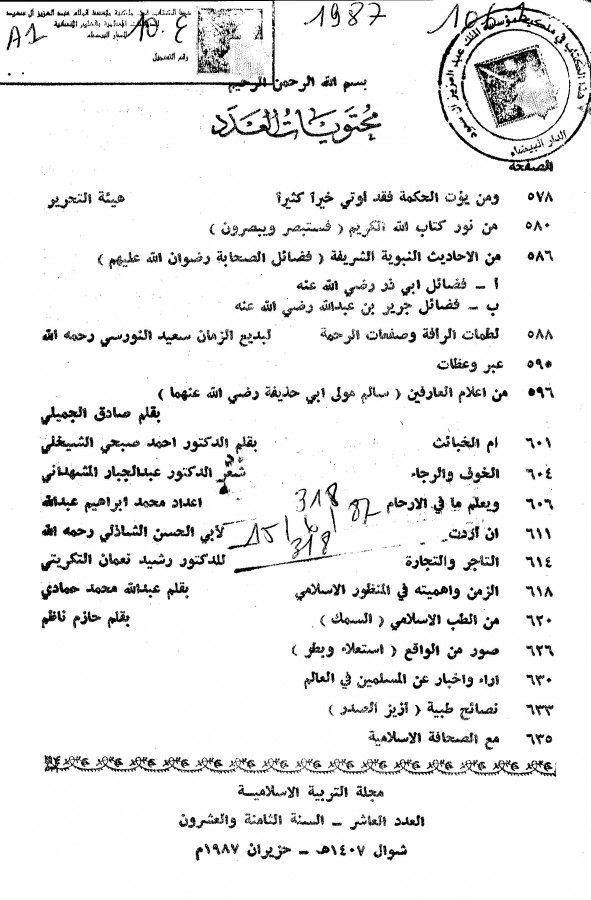 هذا الكتاب في ملكية مؤسسة الملك عبد العزيز آل سعود
الدار البيضاء
رقم التسجيل
A1
10.ع
1987
هذا الكتاب في ملكية مؤسسة الملك عبد العزيز آل سعود
الدار البيضاء
بسم الله الرحمن الرحيم
محتويات العدد
الصفحة
٥٧٨ ومن يؤت الحكمة فقد اوتي خيرآ كثيرآ هيئة التحرير
٥٨٠ من نور كتاب الله الكريم ( فستبصر ويبصرون )
٥٨٦ من الاحاديث النبوية الشريفة ( فضائل الصحابة رضوان الله عليهم )
أ – فضائل ابي ذر رضي الله عنه
ب – فضائل جرير بن عبدالله رضي الله عنه
٥٨٨ لطمات الرافة وصفعات الرحمة لبديع الزمان سعيد النورسي رحمه الله
٥٩٥ عبر وعظات
٥٩٦ من اعلام العارفين ( سالم مولى ابي حذيفة رضي الله عنهما )
بقلم صادق الجميلي
٦٠١ ام الخبائث بقلم الدكتور احمد صبحي الشيخلي
٦٠٤ الخوف والرجاء شعر الدكتور عبدالجبار المشهداني
٦٠٦ ويعلم ما في الارحام اعداد محمد ابراهيم عبدالله
318
15/ 87
318
٦١١ ان اردت لابي الحسن الشاذلي رحمه الله
٦١٤ التاجر والتجارة للدكتور رشيد نعمان التكريتي
٦١٨ الزمن واهميته في المنظور الاسلامي بقلم عبدالله محمد حمادي
٦٢٠ من الطب الاسلامي ( السمك ) بقلم حازم ناظم
٦٢٦ صور من الواقع ( استعلاء وبطر )
٦٣٠ اراء واخبار عن المسلمين في العالم
٦٣٣ نصائح طبية ( أزيز الصدر )
٦٣٥ مع الصحافة الاسلامية
مجلة التربية الاسلامية
العدد العاشر – السنة الثامنة والعشرون
شوال ١٤٠٧هـ – حزيران ١٩٨٧م